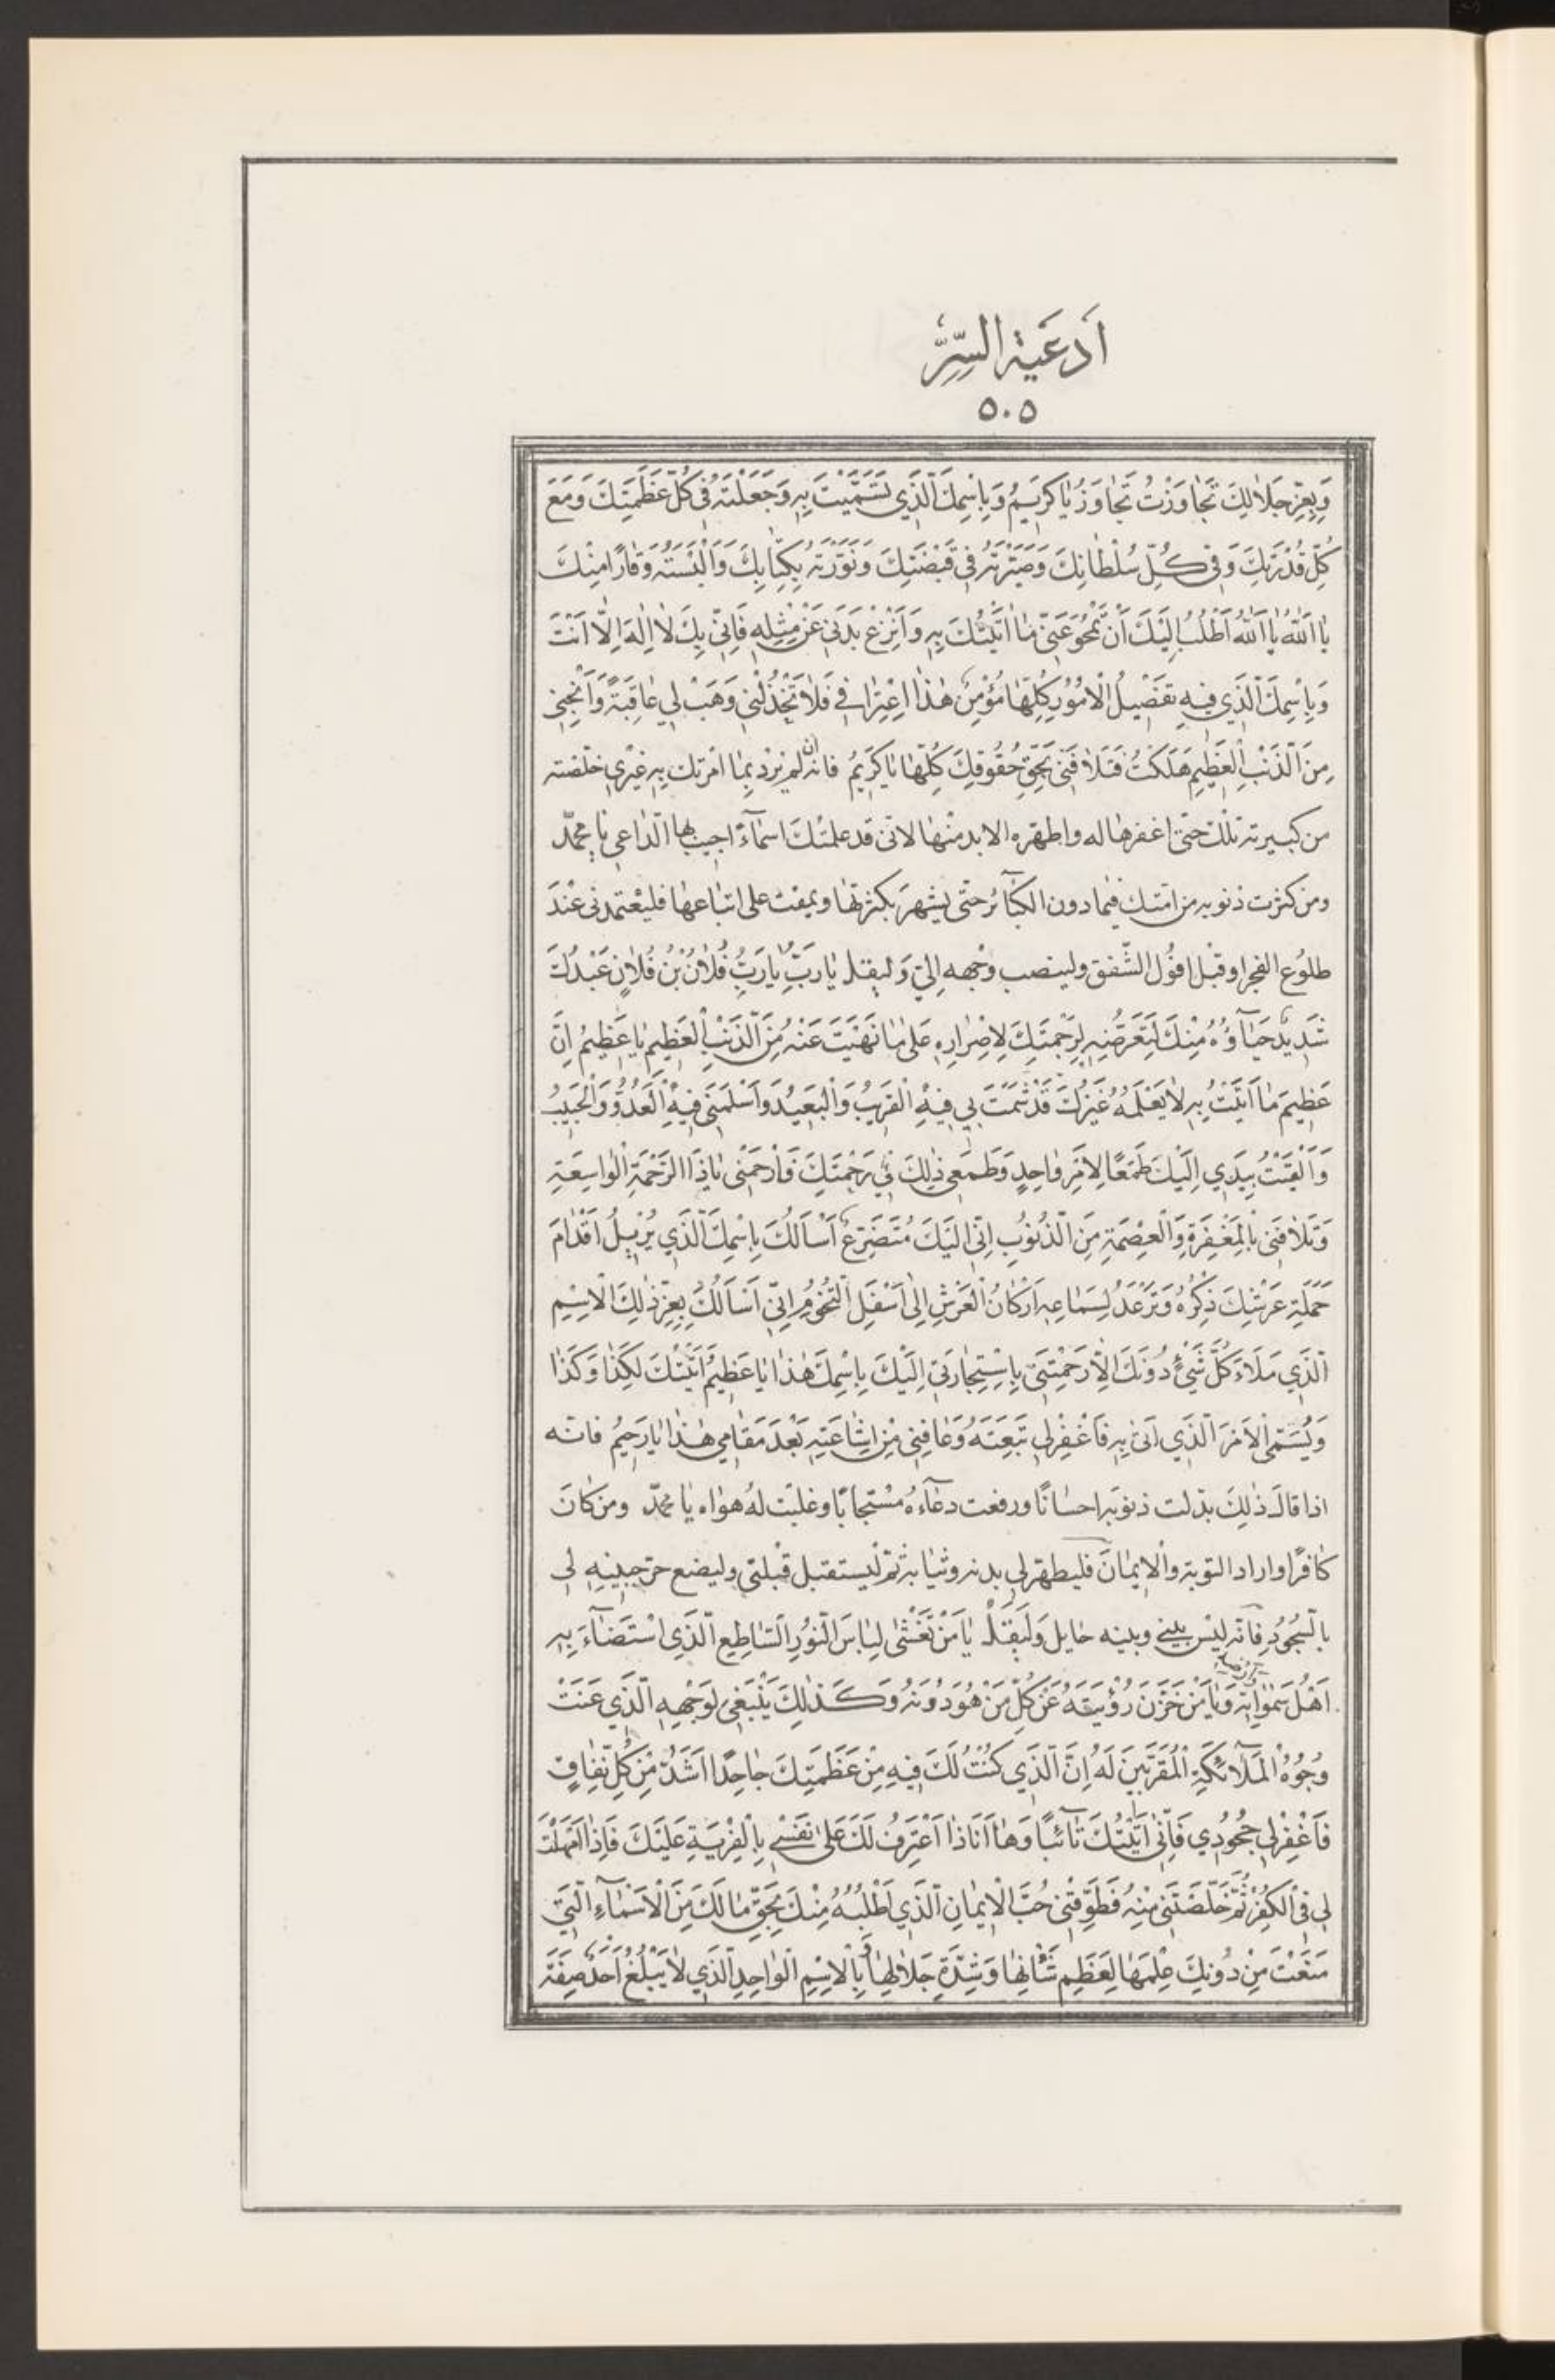 اَدعَیة السِّرِّ
٥٠٥
وَبِعِزِّ جَلَالِكَ تَجَاوَزْتُ تَجَاوَزْ يَا كَرِيمُ وَبِاسْمِكَ الَّذِي تَسَمَّيْتَ بِهِ وَجَعَلْتَهُ فِي كُلِّ عَظَمَتِكَ وَمَعَ
كُلِّ قُدْرَتِكَ وَفِي كُلِّ سُلْطَانِكَ وَصَيَّرْتَهُ فِي قَبْضَتِكَ وَنَوَّرْتَهُ بِكِتَابِكَ وَاَلْبَسْتَهُ وَقَارًا مِنْكَ
يَا اَللهُ يَا اَللهُ اَطْلُبُ اِلَيْكَ اَنْ تَمْحُوَ عَنِّي مَا اَتَيْتُكَ بِهِ وَاَنْزِعْ بَدَنِي عَنْ مِثْلِهِ فَاِنِّي بِكَ لَا اِلٰهَ اِلَّا اَنْتَ
وَبِاسْمِكَ الَّذِي فِيهِ تَفْضِيلُ الْاُمُورِ كُلِّهَا مُؤْمِنٌ هٰذَا اِعْتِرَافِي فَلَا تَخْذُلْنِي وَهَبْ لِي عَاقِبَةً وَاَنْجِنِي
مِنَ الذَّنْبِ الْعَظِيمِ هَلَكْتُ فَتَلَافَنِي بِحَقِّ حُقُوقِكَ كُلِّهَا يَا كَرِيمُ فانه ان لم يزد بما امرتك به غيري خلصته
من كبيرته تلك حتى اغفرها له واطهره الابد منها لانى قد علمتك اسماءً اجيب بها الداعى يا محمّد
ومن كثرت ذنوبه من امتك فيما دون الكبائر حتى يشهر بكثرتها ويمقت على اتباعها فليعتمدنى عند
طلوع الفجر او قبل افول الشفق ولينصب وجهه الىّ وليقل يَا رَبِّ يَا رَبِّ فُلَانُ بْنُ فُلَانٍ عَبْدُكَ
شَدِيدٌ حَيَاؤُهُ مِنْكَ لِتَعَرُّضِهِ لِرَحْمَتِكَ لِاِصْرَارِهِ عَلَى مَا نَهَيْتَ عَنْهُ مِنَ الذَّنْبِ الْعَظِيمِ يَا عَظِيمُ اِنَّ
عَظِيمَ مَا اَتَيْتُ بِهِ لَا يَعْلَمُهُ غَيْرُكَ قَدْ شَمِتَ بِي فِيهِ الْقَرِيبُ وَالْبَعِيدُ وَاَسْلَمَنِي فِيهِ الْعَدُوُّ وَالْحَبِيبُ
وَاَلْقَيْتُ بِيَدِي اِلَيْكَ طَمَعًا لِاَمْرٍ وَاحِدٍ وَطَمَعِي ذٰلِكَ فِي رَحْمَتِكَ فَارْحَمْنِي يَا ذَا الرَّحْمَةِ الْوَاسِعَةِ
وَتَلَافَنِي بِالْمَغْفِرَةِ وَالْعِصْمَةِ مِنَ الذُّنُوبِ اِنِّي اِلَيْكَ مُتَضَرِّعٌ اَسْاَلُكَ بِاسْمِكَ الَّذِي يُزِيلُ اَقْدَامَ
حَمَلَةِ عَرْشِكَ ذِكْرُهُ وَتَرْعَدُ لِسَمَاعِهِ اَرْكَانُ الْعَرْشِ اِلَى اَسْفَلِ التُّخُومِ اِنِّي اَسْاَلُكَ بِعِزِّ ذٰلِكَ الْاِسْمِ
الَّذِي مَلَاَ كُلَّ شَيْءٍ دُونَكَ اِلَّا رَحِمْتَنِي بِاسْتِجَارَتِي اِلَيْكَ بِاسْمِكَ هٰذَا يَا عَظِيمُ اَتَيْتُكَ لِكَذَا وَكَذَا
وَيُسَمِّى الْاَمْرَ الَّذِي اَتَى بِهِ فَاغْفِرْ لِي تَبِعَتَهُ وَعَافِنِي مِنْ اِشَاعَتِهِ بَعْدَ مَقَامِي هٰذَا يَا رَحِيمُ فانّه
اذا قال ذٰلك بدلت ذنوبه احسانًا ورفعت دعاءه مستجابًا وغلبت له هواه يا محمّد ومن كان
كافرًا واراد التوبة والايمان فليطهر لى بدنه وثيابه ثم ليستقبل قبلتى وليضع حر جبينه لى
بالسجود فانه ليس بينى وبينه حايل وليقل يَا مَنْ تَغَشَّى لِبَاسَ النُّورِ السَّاطِعِ الَّذِي اسْتَضَاءَ بِهِ
اَهْلُ سَمٰوَاتِهِ وَيَا مَنْ خَزَنَ رُؤْيَتَهُ عَنْ كُلِّ مَنْ هُوَ دُونَهُ وَكَذٰلِكَ يَنْبَغِي لِوَجْهِهِ الَّذِي عَنَتْ
وُجُوهُ الْمَلَائِكَةِ الْمُقَرَّبِينَ لَهُ اِنَّ الَّذِي كُنْتُ لَكَ فِيهِ مِنْ عَظَمَتِكَ جَاحِدًا اَشَدُّ مِنْ كُلِّ نِفَاقٍ
فَاغْفِرْ لِي جُحُودِي فَاِنِّي اَتَيْتُكَ تَائِبًا وَهَا اَنَا ذَا اَعْتَرِفُ لَكَ عَلَى نَفْسِي بِالْفِرْيَةِ عَلَيْكَ فَاِذَا اَمْهَلْتَ
لِي فِي الْكُفْرِ ثُمَّ خَلَّصْتَنِي مِنْهُ فَطَوِّقْنِي حُبَّ الْاِيمَانِ الَّذِي اَطْلُبُهُ مِنْكَ بِحَقِّ مَا لَكَ مِنَ الْاَسْمَاءِ الَّتِي
مَنَعْتَ مِنْ دُونِكَ عِلْمَهَا لِعَظِيمِ شَأْنِهَا وَشِدَّةِ جَلَالِهَا وَبِالْاِسْمِ الْوَاحِدِ الَّذِي لَا يَبْلُغُ اَحَدٌ صِفَةَ